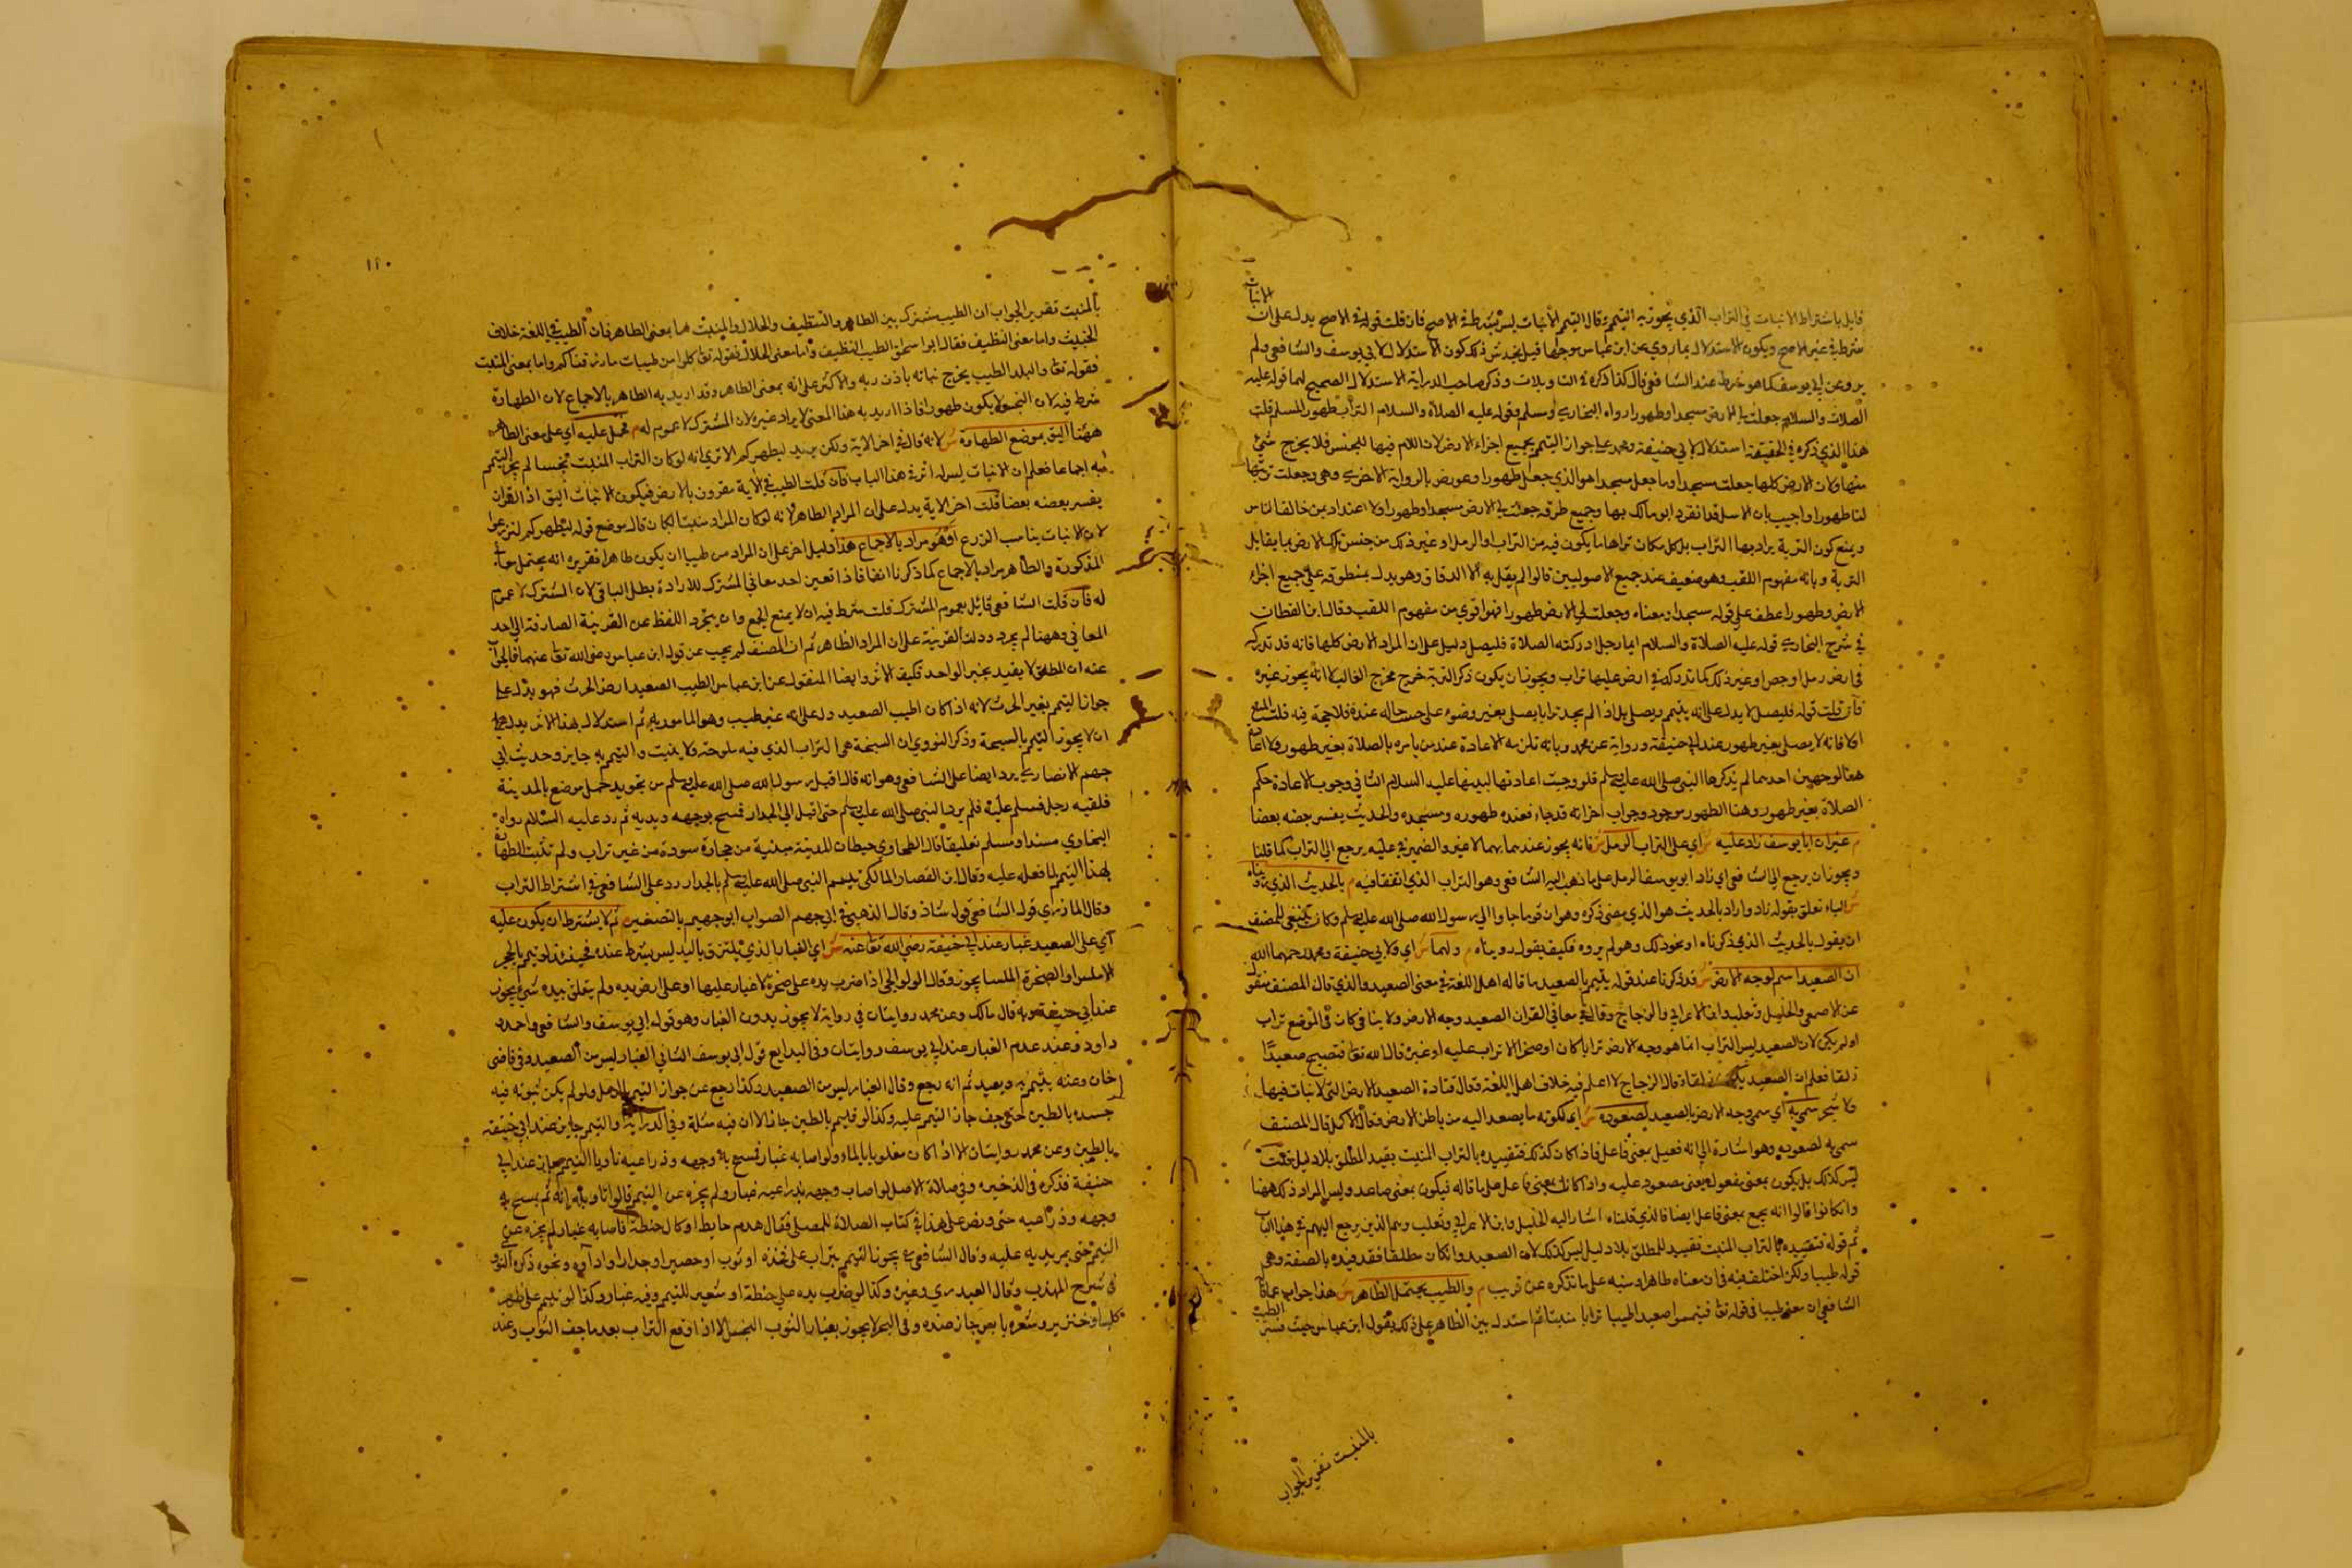 الانبات
قايل باشتراط الانبات في التراب الذي يجوز به التيمم قال التيمم الانبات ليس بشرط في الاصح فان قلت قوله في الاصح يدل على ان
شرط في غير الاصح ويكون الاستدلال بما روي عن ابن عباس موجها قيل يخدش ذلك كون الاستدلال لابي يوسف والشافعي ولم
يرو عن ابي يوسف كما هو شرط عند الشافعي قال كذا ذكره في التاويلات وذكر صاحب الدراية الاستدلال الصحيح لهما قوله عليه
الصلاة والسلام جعلت لي الارض مسجدا وطهورا رواه البخاري ومسلم وقوله عليه الصلاة والسلام التراب طهور المسلم قلت
هذا الذي ذكره في الحقيقة استدلال لابي حنيفة ومحمد على جواز التيمم بجميع اجزاء الارض لان اللام فيها للجنس فلا يخرج شيء
منها ولان الارض كلها جعلت مسجدا وما جعل مسجدا هو الذي جعل طهورا وعورض بالرواية الاخرى وهي وجعلت تربتها
لنا طهورا واجيب بان الاسل قد انفرد ابو مالك بها وجميع طرقه جعلت لي الارض مسجدا وطهورا ولا اعتداد بمن خالف الناس
ويمنع كون التربة يراد بها التراب بل كل مكان تراها ما يكون فيه من التراب والرمل او غير ذلك من جنس تلك الارض مما يقابل
التربة وبانه مفهوم اللقب وهو ضعيف عند جميع الاصوليين قالوا لم يقل به الا الدقاق وهو يدل بمنطوقه على جميع اجزاء
الارض وطهورا عطف على قوله مسجدا ومعناه وجعلت لي الارض طهورا فهو اقوى من مفهوم اللقب وقال ابن القطان
في شرح البخاري قوله عليه الصلاة والسلام ايما رجل ادركته الصلاة فليصل دليل على ان المراد الارض كلها فانه قد تدركه
في ارض رمل او جص او غير ذلك كما تدركه في ارض عليها تراب ويجوز ان يكون ذكر التربة خرج مخرج الغالب لا انه يجوز غيره
فان قلت قوله فليصل لا يدل على انه يتيمم ويصلي بل اذا لم يجد ترابا يصلي بغير وضوء على حسب حاله عنده فلا حجة فيه قلت المنع
اولا فانه لا يصلي بغير طهور عند ابي حنيفة ورواية عن محمد وبانه تلزمه الاعادة عند من يامره بالصلاة بغير طهور ولا اعادة
هنا لوجهين احدهما لم يذكرها النبي صلى الله عليه وسلم فلو وجبت اعادتها لبينها عليه السلام الثاني وجوب الاعادة حكم
الصلاة بغير طهور وهنا الطهور موجود وجواب اخر انه قد جاء فعنده طهوره ومسجده والحديث يفسر بعضه بعضا
م غير ان ابا يوسف زاد عليه ش اي على التراب الرمل ش فانه يجوز عنده بهما لا غير والضمير في عليه يرجع الى التراب كما قلنا
ويجوز ان يرجع الى الشافعي اي زاد ابو يوسف الرمل على ما ذهب اليه الشافعي وهو التراب الذي اتفقا فيه م بالحديث الذي رويناه
ش الباء تعلق بقوله زاد واراد بالحديث هو الذي مضى ذكره وهو ان قوما جاوا الى رسول الله صلى الله عليه وسلم وكان ينبغي للمصنف
ان يقول بالحديث الذي ذكرناه او نحو ذلك وهو لم يروه فكيف يقول رويناه م ولهما ش اي ولابي حنيفة ومحمد رحمهما الله
ان الصعيد اسم لوجه الارض ش قد ذكرنا عند قوله يتيمم بالصعيد ما قاله اهل اللغة في معنى الصعيد والذي قال المصنف منقول
عن الاصمعي والخليل وثعلب وابن الاعرابي والزجاج وقال في معاني القران الصعيد وجه الارض ولا يبالي كان في الموضع تراب
او لم يكن لان الصعيد ليس التراب انما هو وجه الارض ترابا كان او صخرا لا تراب عليه او غيره قال الله تعالى فتصبح صعيدا
زلقا فعلم ان الصعيد يكون زلقا وقال الزجاج لا اعلم فيه خلاف اهل اللغة وقال قتادة الصعيد الارض التي لا نبات فيها
ولا شجر سمي به اي سمي وجه الارض بالصعيد لصعوده ش اي لكونه ما يصعد اليه من باطن الارض وقال الاكمل قال المصنف
سمي به لصعوده وهو اشارة الى انه فعيل بمعنى فاعل فاذا كان كذلك فتقييده بالتراب المنبت يقيد المطلق بلا دليل قلت
ليس كذلك بل يكون بمعنى مفعول يعنى مصعود عليه واذا كان بمعنى فاعل على ما قاله فيكون بمعنى صاعد وليس المراد ذلك ههنا
وان كانوا قالوا انه يجيء بمعنى فاعل ايضا فالذي قلناه اشار اليه الخليل وابن الاعرابي وثعلب وهم الذين يرجع اليهم في هذا الباب
ثم قوله فتقييده بالتراب المنبت تقييد للمطلق بلا دليل ليس كذلك لان الصعيد وان كان مطلقا فقد قيده بالصفة وهي
قوله طيبا ولكن اختلف فيه فان معناه طاهرا ومنبه على ما نذكره عن قريب م والطيب يحتمل الطاهر ش هذا جواب عما قال
الشافعي ان معنى طيبا في قوله تعالى فتيمموا صعيدا طيبا ترابا منبتا ثم استدل بين الظاهر على ذلك بقول ابن عباس حيث فسر الطيب
بالمنبت تقرير الجواب
١٢٠
بالمنبت تقرير الجواب ان الطيب مشترك بين الطاهر والنظيف والحلال والمنبت اما بمعنى الطاهر فان الطيب في اللغة خلاف
الخبيث واما معنى النظيف فقال ابو اسحاق الطيب النظيف واما معنى الحلال فقوله تعالى كلوا من طيبات ما رزقناكم واما بمعنى المنبت
فقوله تعالى والبلد الطيب يخرج نباته باذن ربه والاكثر على انه بمعنى الطاهر وقد اريد به الطاهر بالاجماع لان الطهارة
شرط فيه لان النجس لا يكون طهورا فاذا اريد به هذا المعنى لا يراد غيره لان المشترك لا عموم له م فحمل عليه اي على معنى الطاهر
ههنا اليق بموضع الطهارة ش لانه قال في اخر الاية ولكن يريد ليطهركم الا ترى انه لو كان التراب المنبت نجسا لم يجز التيمم
به اجماعا فعلم ان الانبات ليس له اثر في هذا الباب فان قلت الطيب في الاية مقرون بالارض فيكون الانبات اليق اذ القران
يفسر بعضه بعضا قلت اخر الاية يدل على ان المراد الطاهر لانه لو كان المراد منبتا لكان قال موضع قوله ليطهركم لتزرعوا
لان الانبات يناسب الزرع او هو مراد بالاجماع هذا دليل اخر على ان المراد من طيبا ان يكون طاهرا تقريره انه يحتمل معاني
المذكورة والطاهر مراد بالاجماع كما ذكرنا انفا فاذا تعين احد معاني المشترك للارادة بطل الباقي لان المشترك لا عموم
له فان قلت الشافعي قايل بعموم المشترك قلت شرط فيه ان لا يمنع الجمع وان يتجرد اللفظ عن القرينة الصارفة الى احد
المعاني وههنا لم يجرد ودلت القرينة على ان المراد الطاهر ثم ان المصنف لم يجب عن قول ابن عباس رضي الله تعالى عنهما فالجواب
عنه ان المطلق لا يقيد بخبر الواحد فكيف الاثر وايضا المنقول عن ابن عباس الطيب الصعيد ارض الحرث فهو يدل على
جواز التيمم بغير الحرث لانه اذا كان اطيب الصعيد دل على انه غير طيب وهو المامور به ثم استدلال بهذا الاثر يدل على
ان لا يجوز التيمم بالسبخة وذكر النووي ان السبخة هي التراب الذي فيه ملوحة ولا ينبت والتيمم به جايز وحديث ابي
جهم الانصاري يرد ايضا على الشافعي وهو انه قال اقبل رسول الله صلى الله عليه وسلم من نحو بير جمل موضع بالمدينة
فلقيه رجل فسلم عليه فلم يرد النبي صلى الله عليه وسلم حتى اقبل الى الجدار فمسح بوجهه ويديه ثم رد عليه السلام رواه
البخاري مسندا ومسلم تعليقا قال الطحاوي حيطان المدينة مبنية من حجارة سودة من غير تراب ولم تثبت الطهارة
بهذا التيمم لما فعله عليه وقال ابن القصار المالكي تيمم النبي صلى الله عليه وسلم بالجدار رد على الشافعي في اشتراط التراب
وقال المازري قول الشافعي قوله شاذ وقال الذهبي في ابي جهم الصواب ابو جهيم بالتصغير م ثم لا يشترط ان يكون عليه
اي على الصعيد غبار عند ابي حنيفة رضي الله تعالى عنه ش اي الغبار الذي يلتزق باليد ليس بشرط عنده فحينئذ لو تيمم بالحجر
الاملس او الصخرة الملسا يجوز وقال الولوالجي اذا ضرب يده على صخرة لا غبار عليها او على ارض ندية ولم يتعلق بيده شيء يجوز
عند ابي حنيفة وبه قال مالك وعن محمد روايتان في رواية لا يجوز بدون الغبار وهو قول ابي يوسف والشافعي واحمد و
داود وعند عدم الغبار عند ابي يوسف روايتان وفي البدايع قول ابي يوسف الثاني الغبار ليس من الصعيد وفي قاضي
خان وعنه يتيمم به ويعيد ثم انه رجع وقال الغبار ليس من الصعيد وكذا رجع عن جواز التيمم بالرمل ولو لم يكن ثبوته فيه
جسده بالطين حتى يجف جاز التيمم عليه وكذا لو تيمم بالطين جاز الا ان فيه مثلة وفي الدراية والتيمم جايز عند ابي حنيفة
بالطين وعن محمد روايتان الا اذا كان مغلوبا بالماء ولو اصابه غبار فمسح به وجهه وذراعيه ناويا التيمم جاز عند ابي
حنيفة فذكره في الذخيره وفي صلاة الاصل لو اصاب وجهه وذراعيه غبار ولم يجزه عن التيمم قالوا تاويله انه ثم يمسح به
وجهه وذراعيه حتى ونص على هذا في كتاب الصلاة للمصلى فقال هدم حايط او كال حنطة فاصابه غبار لم يجزه عن
التيمم حتى يمر يديه عليه وقال الشافعي يجوز التيمم بتراب على فخذه او ثوب او حصير او جدار او اداوة ونحوه ذكره النووي
في شرح المهذب وقال العبدري وغيره وكذا لو ضرب يده على حنطة او شعير للتيمم وفيه غبار وكذا لو تيمم على ظهر
كلب او خنزير وشعره يابس جاز عنده وفي البحر لا يجوز بغبار الثوب النجس الا اذا وقع التراب بعد ما جف الثواب وعند